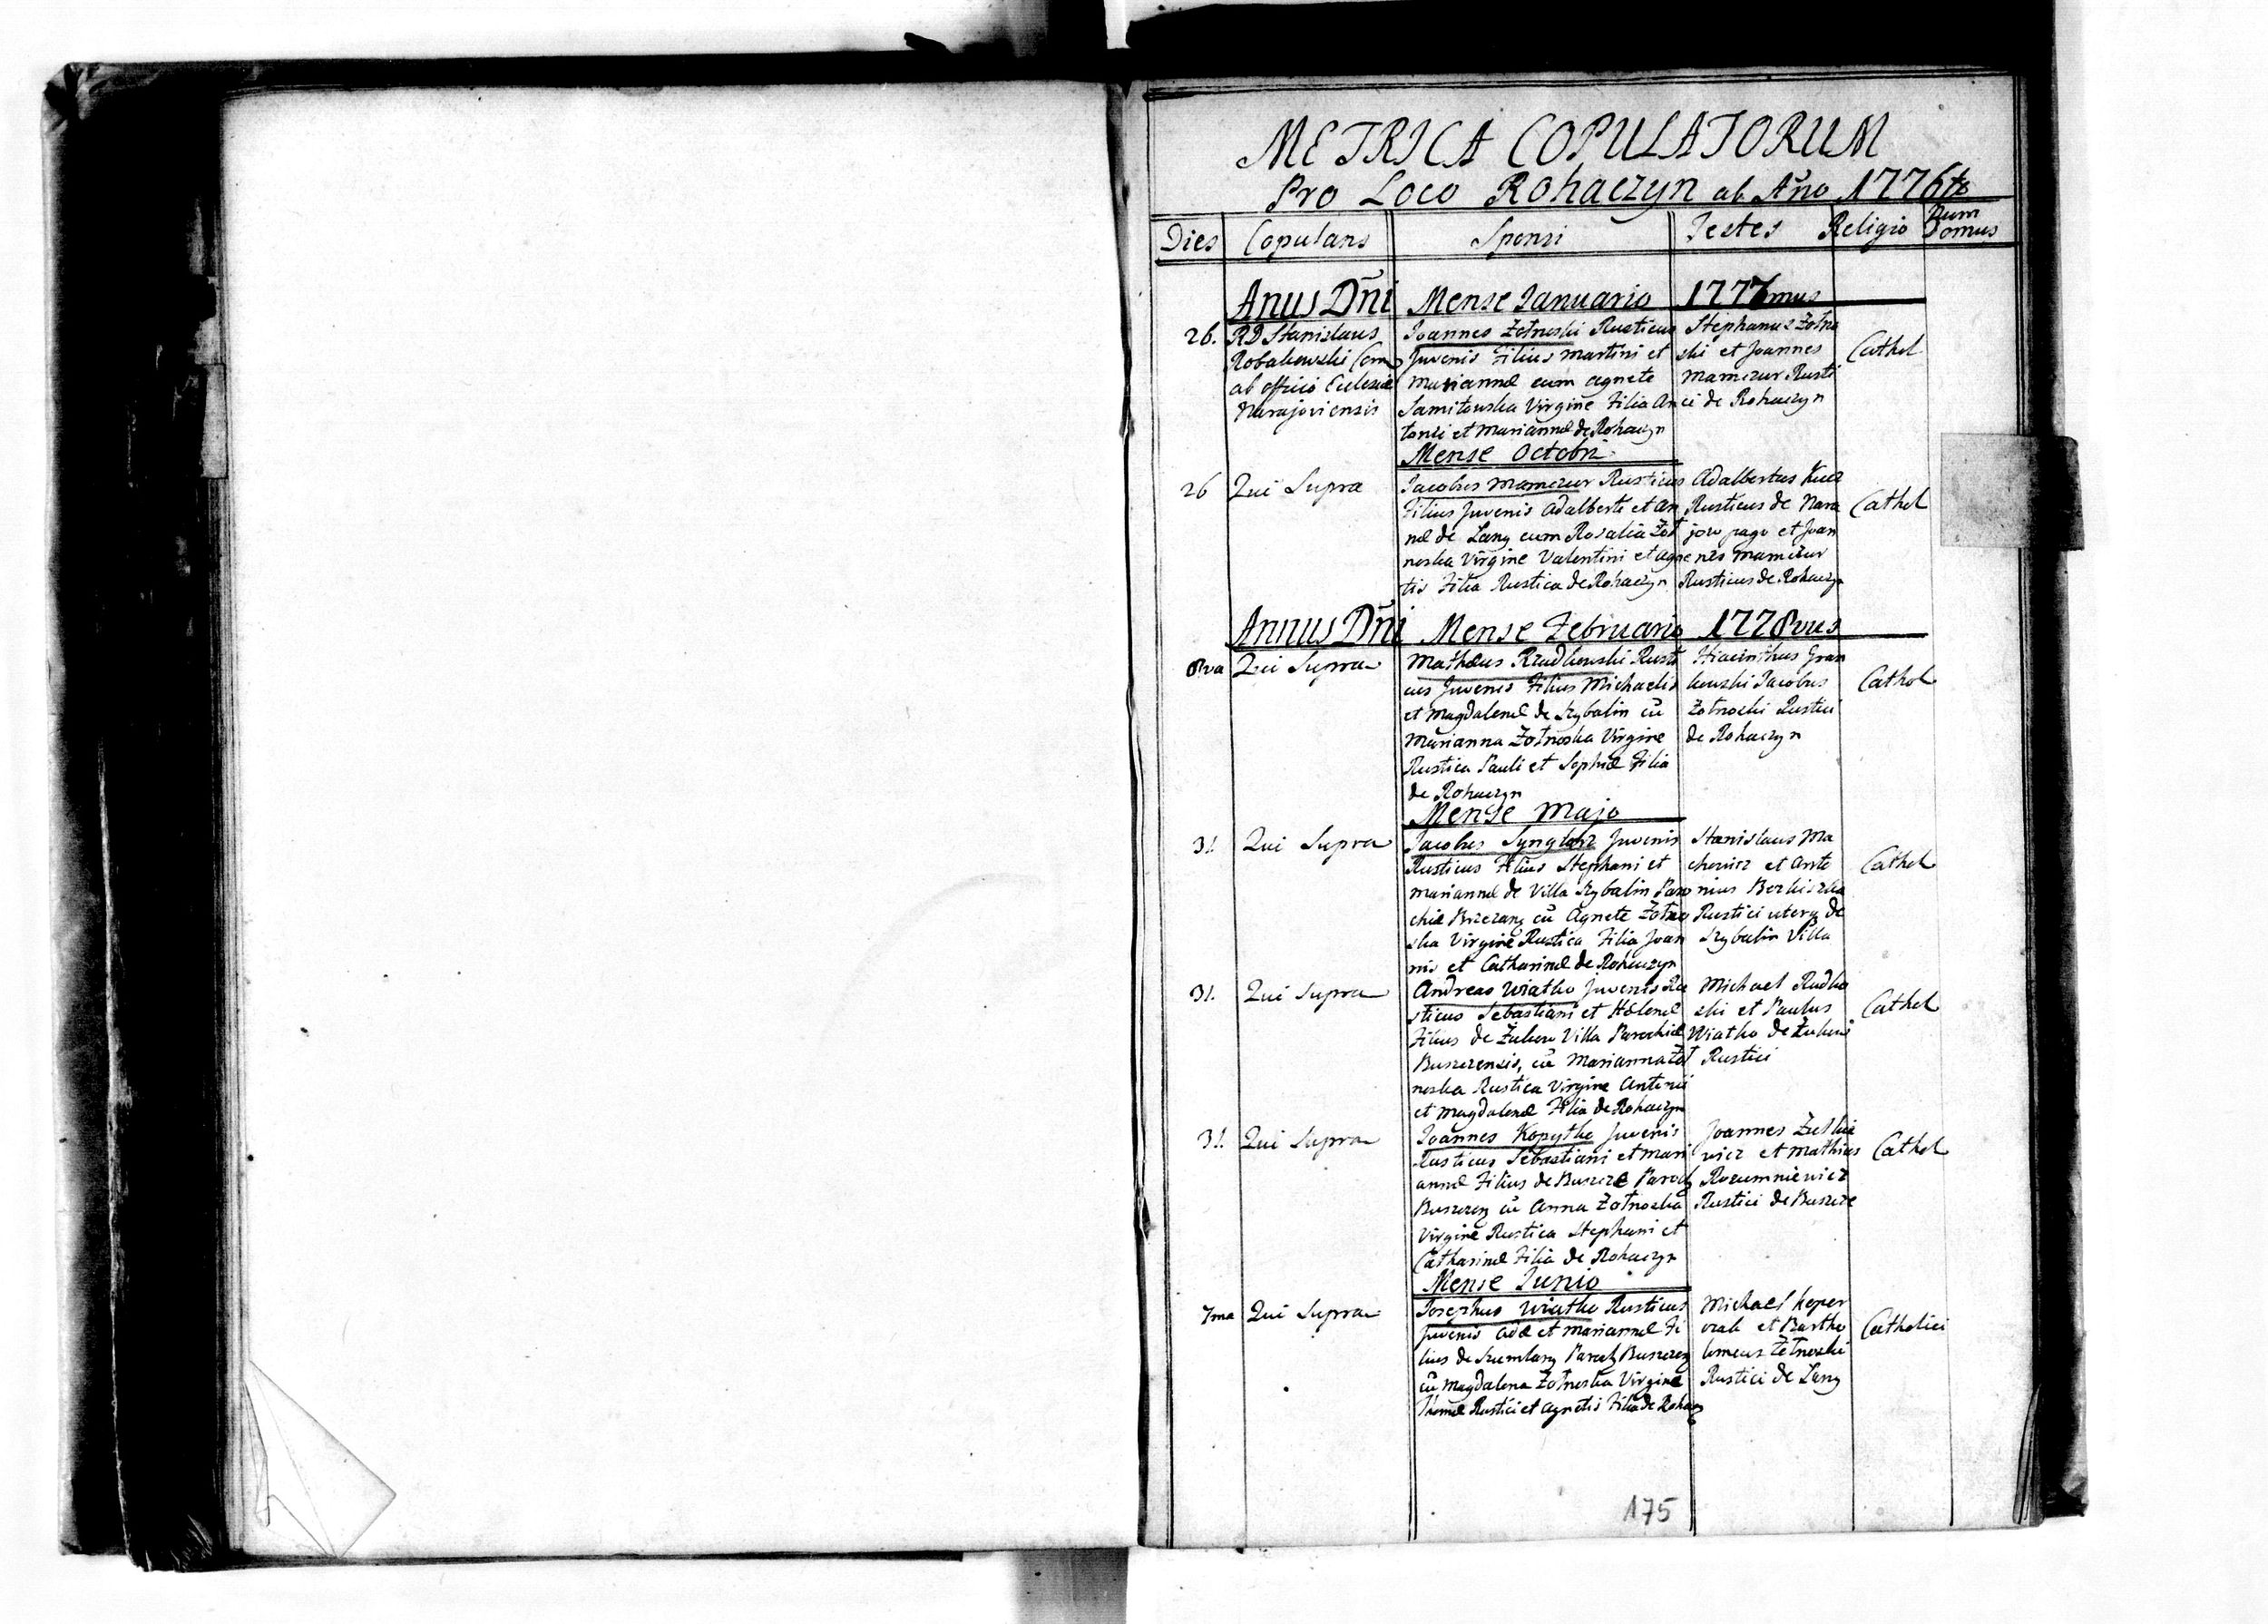 METRICA COPULATORUM
Pro Loco Rohaczyn ab Año 1776to
Dies Copulans Sponsi Testes Religio Num Domus
Anus Dñi Mense Januario 1777mus
26.
RD Stanislaus
Robakowski Com
ab officio Eclesiæ
Narajoviensis
Joannes Zotnoski Rusticus
Juvenis Filius Martini et
Mariannæ cum Agnete
Virgine Filia An
tonii et Mariannæ de Rohaczyn
Stephanus Zotno
ski et Joannes
Mamczur Rusti
ci de Rohaczyn
Cathol
Mense Octobri
26
Qui Supra
Jacobus Mamczur Rusticus
Filius Juvenis Adalberti et An
næ de Lany cum Rosalia Zot
noska Virgine Valentini et Agne
tis Filia Rustica de Rohaczyn
Adalbertus Kucz
Rusticus de Nara
jow pago et Joan
nes Mamczur
Rusticus de Rohaczyn
Cathol
Annus Dñi Mense Februario 1778vus
8va
Qui Supra
Mathæus Rzudkowski Rusti
cus Juvenis Filius Michaelis
et Magdalenæ de Szybalin cū
Marianna Zotnoska Virgine
Rustica Pauli et Sophiæ Filia
de Rohaczyn
Hiacinthus Gran
kowski Jacobus
Zotnoski Rustici
de Rohaczyn
Cathol
Mense Majo
31.
Qui Supra
Jacobus Synglarz Juvenis
Rusticus Filius Stephani et
Mariannæ de Villa Szybalin Paro
chiæ Brzezany cū Agnete Zotno
ska Virgine Rustica Filia Joan
nis et Catharinæ de Rohaczyn
Stanislaus Ma
chowicz et Anto
nius
Rustici uterq de
Szybalin Villa
Cathol
31.
Qui Supra
Andreas Wiatko Juvenis Ru
sticus Sebastiani et Helenæ
Filius de Zukow Villa Parochiæ
Buszczensis, cū Marianna Zot
noska Rustica Virgine Antonii
et Magdalenæ Filia de Rohaczyn
Michael Rudko
ski et Paulus
Wiatko de Zukow
Rustici
Cathol
31.
Qui Supra
Joannes Kopytko Juvenis
Rusticus Sebastiani et Mari
annæ Filius de Buszcze Paroch
Buszczen cū Anna Zotnoska
Virgine Rustica Stephani et
Catharinæ Filia de Rohaczyn
Joannes Zutkie
wicz et Mathias
Rozumniewicz
Rustici de Buszcze
Cathol
Mense Junio
7ma
Qui Supra
Josephus Wiatko Rusticus
Juvenis Adæ et Mariannæ Fi
lius de Szumlany Paroch Buszczen
cū Magdalena Zotnoska Virgine
Thomæ Rustici et Agnetis Filia de Rohacz
Michael Koper
czak et Bartho
lomeus Zotnoski
Rustici de Lany
Catholici
175